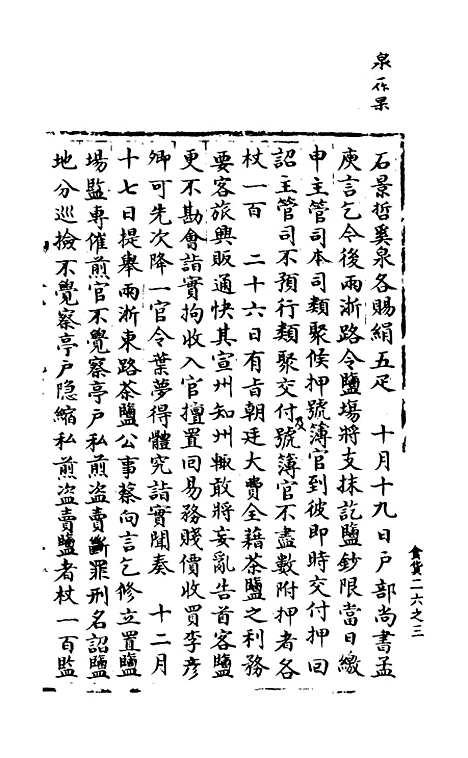 泉一作杲
石景哲奚泉各賜絹五疋　十月十九日戶部尚書孟
庾言乞今後兩浙路令鹽塲將支抹訖鹽鈔限當日繳
申主管司本司類聚候押號簿官到彼即時交付押回
詔主管司不預行類聚交付及號簿官不盡數附押者各
杖一百　二十六日有旨朝廷大費全藉茶鹽之利務
要客旅興販通快其宣州知州輙敢將妄亂告首客鹽
更不勘會詣實拘收入官擅置回易務賤價收買李彥
卿可先次降一官令葉夢得體究詣實聞奏　十二月
十七日提舉兩浙東路茶鹽公事蔡向言乞修立置鹽
場監專催煎官不覺察亭戶私煎盜賣斷罪刑名詔鹽
地分巡撿不覺察亭戶隐縮私煎盜賣鹽者杖一百監
食貨二六之三